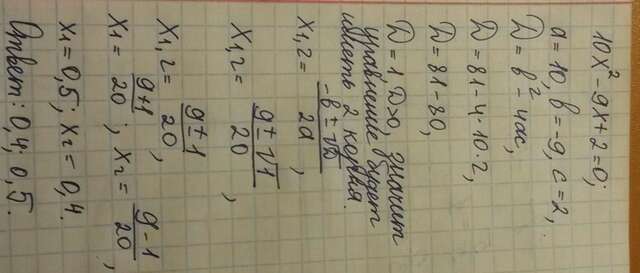 10x² - 9x + 2 = 0;
a = 10, b = -9, c = 2,
D = b² - 4ac,
D = 81 - 4 · 10 · 2,
D = 81 - 80,
D = 1 D>0, значит
уравнение будет
иметь 2 корня.
x₁,₂ = (-b ± √D)/2a,
x₁,₂ = (9 ± √1)/20,
x₁,₂ = (9 ± 1)/20,
x₁ = (9+1)/20; x₂ = (9 - 1)/20,
x₁ = 0,5; x₂ = 0,4.
Ответ: 0,4; 0,5.